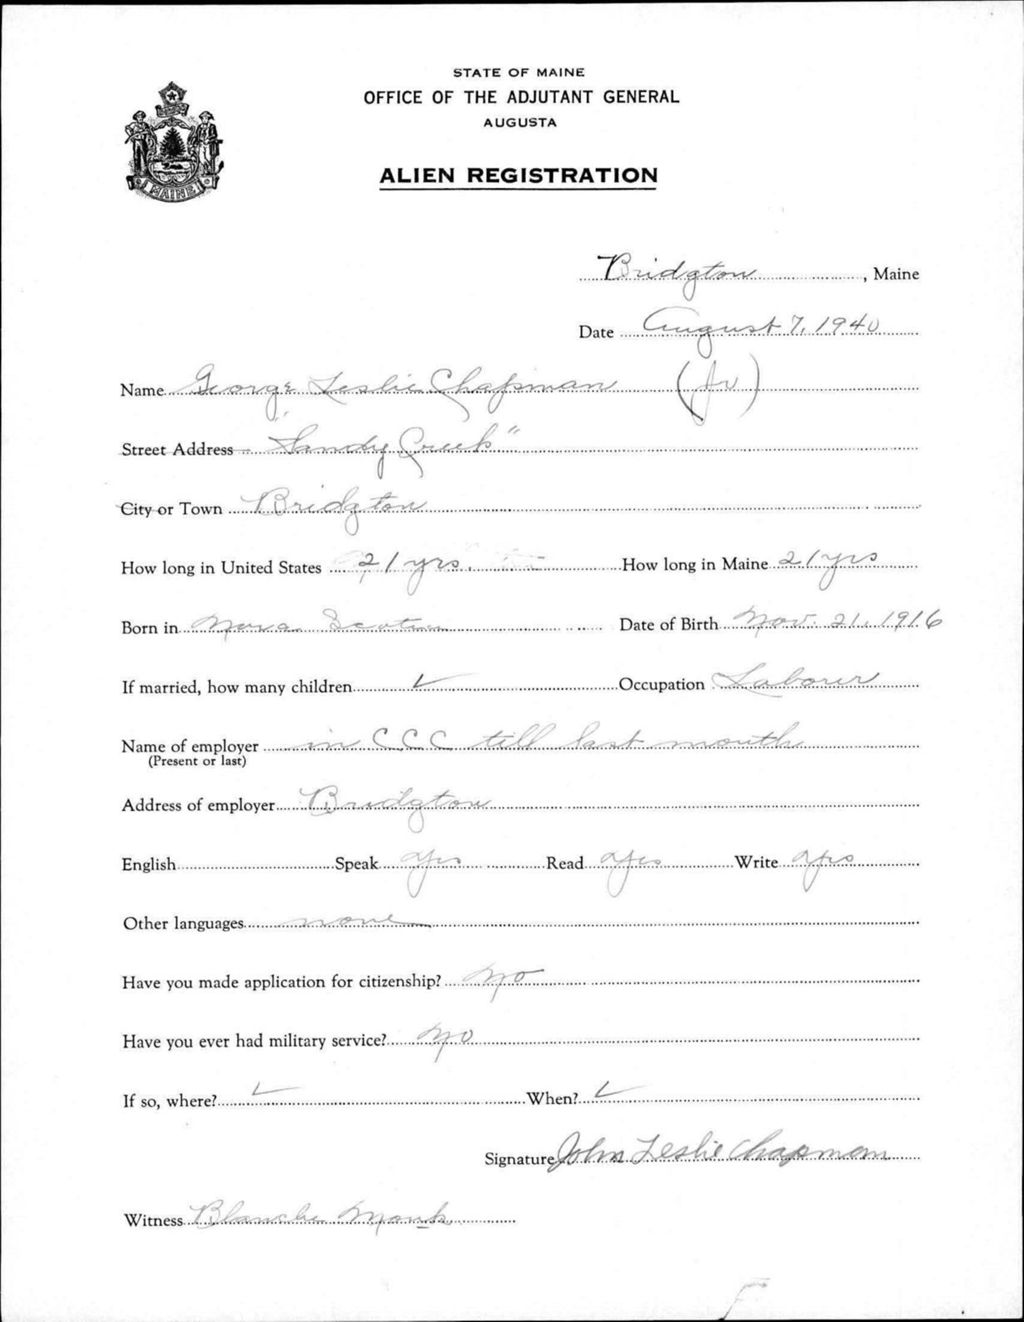 STATE OF MAINE
OFFICE OF THE ADJUTANT GENERAL
AUGUSTA
ALIEN REGISTRATION
MAINE
Bridgton, Maine
Date August 7, 1940
Name George Leslie Chapman (Jr)
Street Address "Sandy Creek"
City or Town Bridgton
How long in United States 21 yrs. How long in Maine 21 yrs
Born in Nova Scotia Date of Birth Nov. 21, 1916
If married, how many children ✓ Occupation Laborer
Name of employer in CCC till last month
(Present or last)
Address of employer Bridgton
English Speak yes Read yes Write yes
Other languages none
Have you made application for citizenship? No
Have you ever had military service? No
If so, where? ✓ When? ✓
Signature John Leslie Chapman
Witness Blanche Monk
F